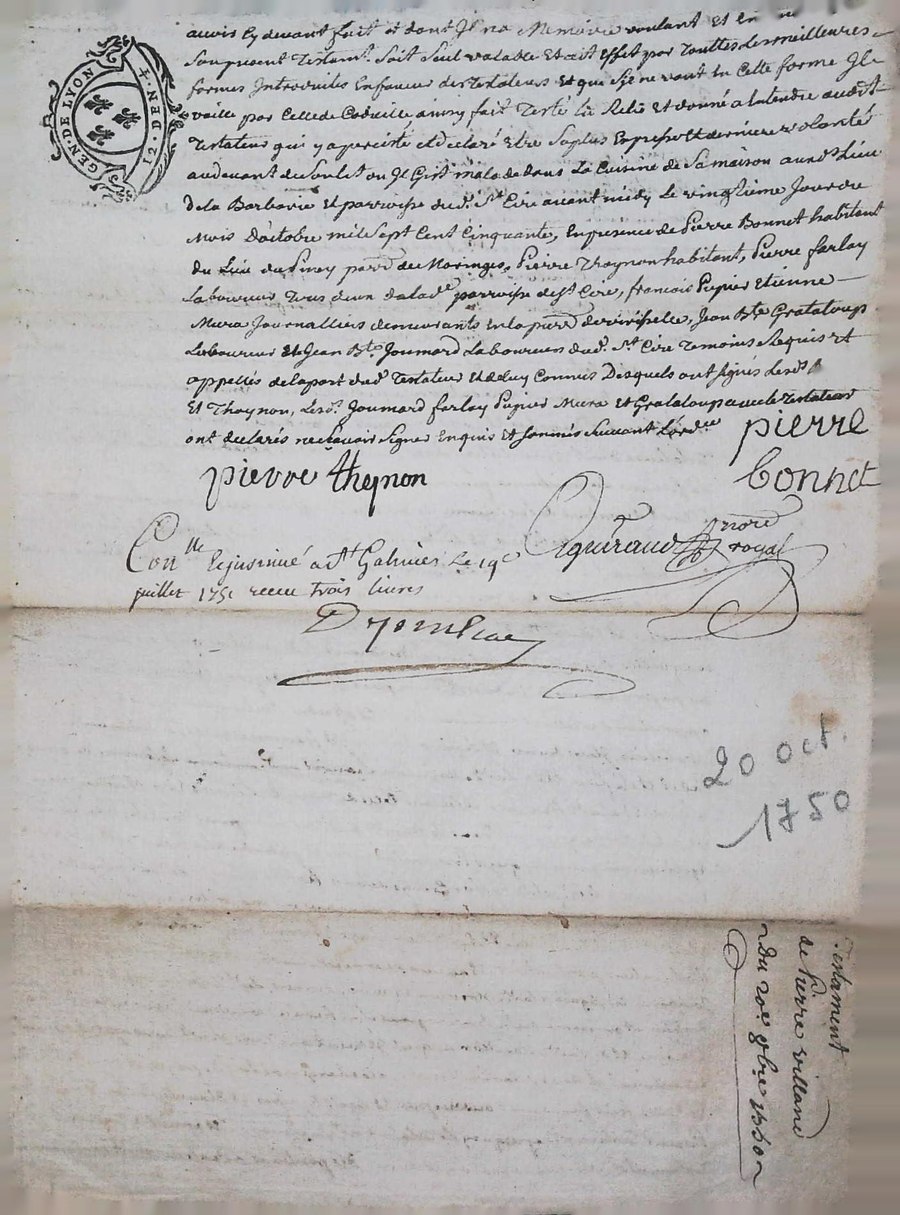 GEN·DE LYON
12 DEN·4
auoir Cy deuant fait et dont Jl na Memoire voulant et
Son present Testamt. Soit Seul valable Et ait Effet par Touttes les meilleures
formes Introduites Enfaueur des Testateurs Et que Sy ne vaut En Cette forme Jl
vaille par Celle de Codicille ainsy fait Testé Lu Relu Et donné a Entendre audit
Testateur qui y a percisté et declaré Etre Sa plus Expresse Et derniere volonté
audeuant du Soulit ou Jl Gist malade dans La Cuisine de Sa maison aud. Lieu
De la Barbarie Et parroisse dud. St. Cire auant midy Le vingtieme Jour de
Mois D'actobre mil Sept Cent Cinquante, En presence de Pierre Bonnet habitant
du Lieu du Piney parr. de Maringes, Pierre Thoynon habitant, Pierre farlay
Laboureur Tous deux de lad. parroisse de St. Cire, francois Pupier Etienne
Mura Journalliers demeurants En la parr. de virisselle, Jean Bte. Grataloup
Laboureur Et Jean Bte. Joumard Laboureur dud. St. Cire Temoins Requis Et
appellés de la part dud. Testateur Et de Luy Connus Desquels ont Signés Lesd. B
Et Thoynon, Lesd. Joumard farlay Pupier Mura Et Grataloup auec le Testateur
ont declarés ne Sçauoir Signer Enquis Et Sommés Suiuant Lord.ce
pierre
pierre thoynon
bonnet
guiraud nore
royal
Con.lle Et jnsinué a St. Galmier Le 19e
juillet 1751 receu trois liures
20 oct.
1750
Testament
de Pierre villand
Du 20e. 8bre 1750